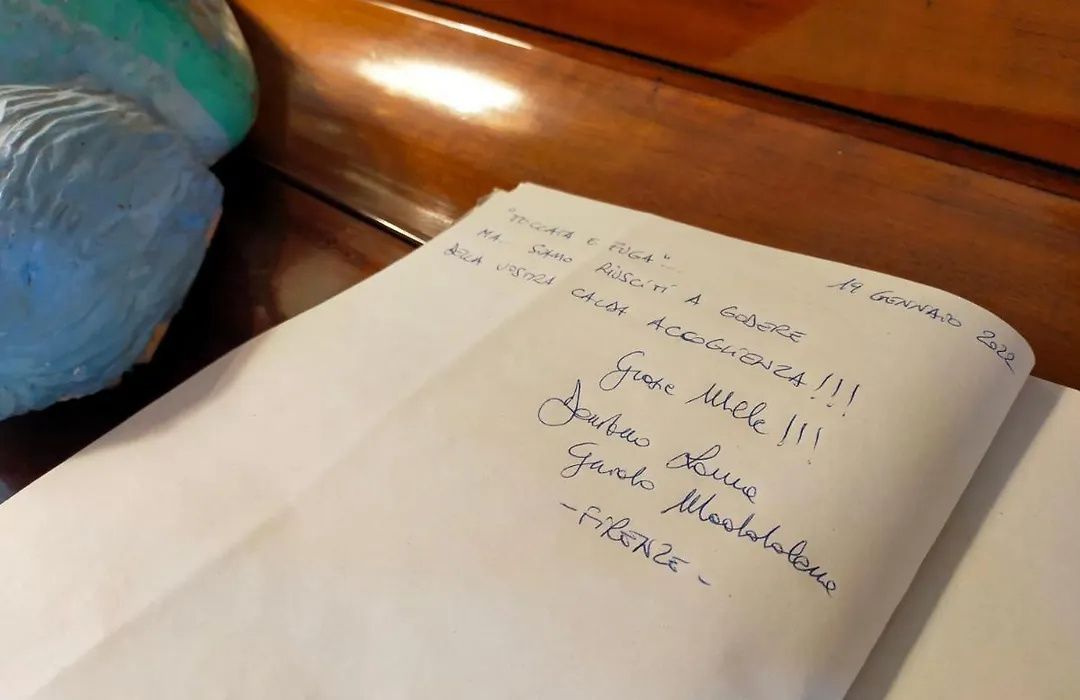 19 GENNAIO 2022
"TOCCATA E FUGA"
MA... SIAMO RIUSCITI A GODERE
DELLA VOSTRA CALDA ACCOGLIENZA!!!
Grazie Mille!!!
Maddalena
-FIRENZE-